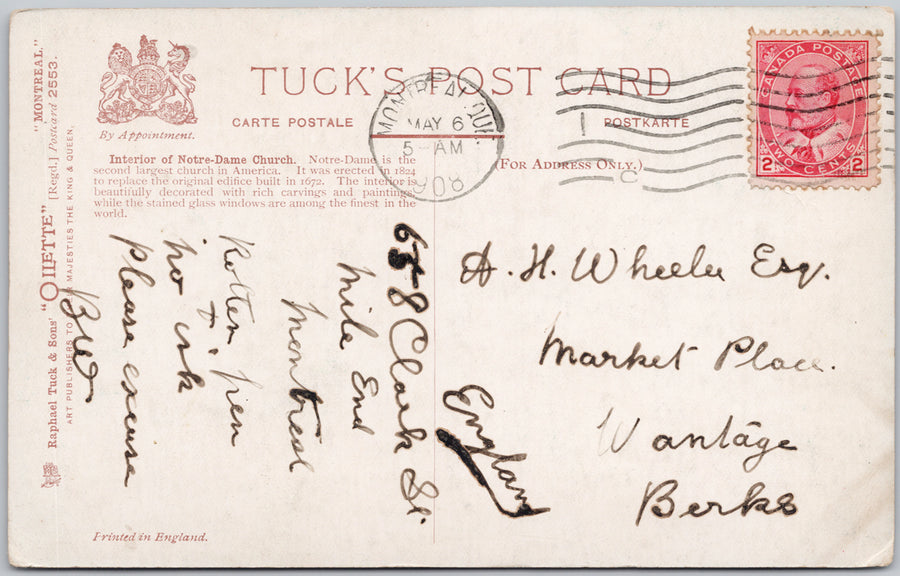 TUCK'S POST CARD
CARTE POSTALE
POSTKARTE
By Appointment.
(FOR ADDRESS ONLY.)
Interior of Notre-Dame Church. Notre-Dame is the
second largest church in America. It was erected in 1824
to replace the original edifice built in 1672. The interior is
beautifully decorated with rich carvings and paintings
while the stained glass windows are among the finest in the
world.
"MONTREAL."
Raphael Tuck & Sons' "OILETTE" [Regd.] Postcard 2553.
ART PUBLISHERS TO MAJESTIES THE KING & QUEEN.
Printed in England.
MONTREAL, QUE
MAY 6
5-AM
CANADA POSTAGE
2 TWO CENTS 2
658 Clark St.
Mile End
Montreal
Rotten pen
+
no ink
please excuse
BW
A. H. Wheeler Esq.
Market Place.
Wantage
Berks
England